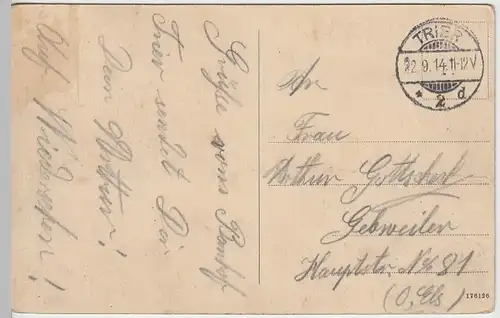 Grüße vom Bahnhof
Trier sendet Dir
Dein Arthur!
Auf Wiedersehen!
TRIER
22.9.14.11-12V
* 2 d
An
Frau
Arthur Gottschalk
Gebweiler
Hauptstr. No 81
(O. Els)
176126